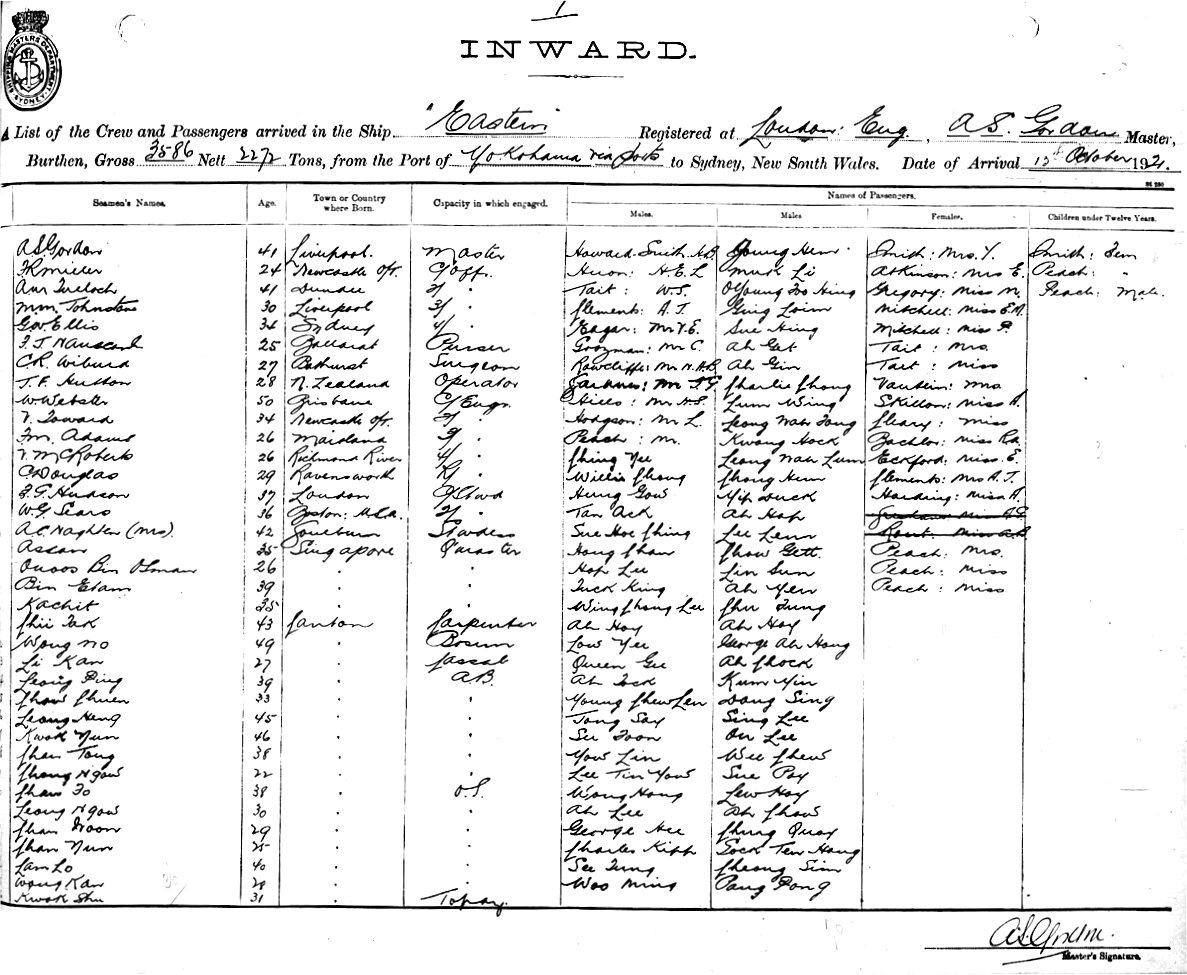 1
SHIPPING MASTERS DEPARTMENT SYDNEY
INWARD.
List of the Crew and Passengers arrived in the Ship "Eastern Registered at London: Eng., A.S. Gordon Master,
Burthen, Gross 3586 Nett 2272 Tons, from the Port of Yokohama via ports to Sydney, New South Wales. Date of Arrival October 1921.
Seamen's Names. Age. Town or Country where Born. Capacity in which engaged. Names of Passengers.
Males. Males Females. Children under Twelve Years.
A.S. Gordon 41 Liverpool. Master Howard-Smith Young Hem Smith: Mrs. Y. Smith: Fem
24 Newcastle C/off. Huon: H.E.L. Atkinson: Mrs E. Peach: "
41 Dundee 2/ " Tait: W.S. OYoung Foo Hing Gregory: Miss M. Peach: Male
Johnstone 30 Liverpool 3/ " Clements: A.J. Mitchell: Miss E.M.
Geo. Ellis 34 Sydney 4/ " Eagar: Mr V.E. Sue Hing Mitchell: Miss P.
25 Ballarat Purser Mr C. Ah Get Tait: Mrs.
C.R. 27 Bathurst Surgeon Rawcliffe: Mr N.H.B. Ah Gin Tait: Miss
T.F. Hutton 28 N. Zealand Operator Charlie Chong Mrs.
W. Webster 50 Brisbane C/Engr. Hills: Mr H.S. Lum Wing Skillon: Miss A.
34 Newcastle 2/ " Hodgson: Mr L. Leong Wah Cleary: Miss
Adams 26 Maitland 3/ " Peach: Mr. Kwong Hock Bachlor: Miss
McRoberts 26 Richmond River 4/ " Ching Yee Leong Wah Lum Eckford: Miss E.
C. Douglas 29 Ravensworth R/ " Willie Chong Chong Hem Clements: Mrs A.J.
Hudson 37 London C/Stwd Hung Gow Yip Duck Harding: Miss A.
W.G. Sears 36 Boston: U.S.A. 2/ " Tan Ack Ah Hop
A.C. Naghten (Mrs). 42 Goulburn Stwdess Sue Hoe Ching Lee Lenn
Assan 35 Singapore Q'master Hong Chan Chow Gett. Peach: Mrs.
Bin Osman 26 " " Hop Lee Lin Sun Peach: Miss
Bin Etam 39 " " Tuck King Ah Yen Peach: Miss
Kachit 35 " " Wing Chong Lee Chu Tung
Chii Tak 43 Canton Carpenter Ah Hoy Ah Hoy
Wong No 49 " Bosun Low Yee George Ah Hong
Li Kan 27 " Cassab Queen Gee Ah Chock
Leong Ping 39 " A.B. Ah Tock Kum Yin
Chow Chuen 33 " " Young Chew Len Dong Sing
Leong Heng 45 " " Tong Say Sing Lee
Kwok Yun 46 " " See Toon On Lee
Chan Tong 38 " " Yow Lin Wee Chew
Chong Ngow 22 " " Lee Tin Yow Sue Poy
Chan To 38 " O.S. Wong Hong Lew Hoy
Leong Ngow 30 " " Ah Lee Ah Chow
Chan Woon 29 " " George Hee Chung Quoy
Chan Yun 25 " " Charles Kipp Sock Ten Hong
Lam Lo 40 " " See Tung Cheong Sim
Wong Kan 28 " " Woo Ming Pang Pong
Kwok Shu 31 " Topaz.
Master's Signature.